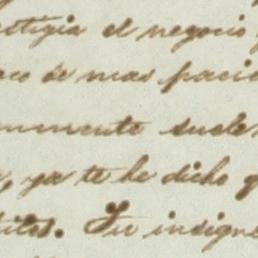 estigia el negocio
oco de mas pacie
mmente suele
, ya te he dicho q
ditos. Tu insigne